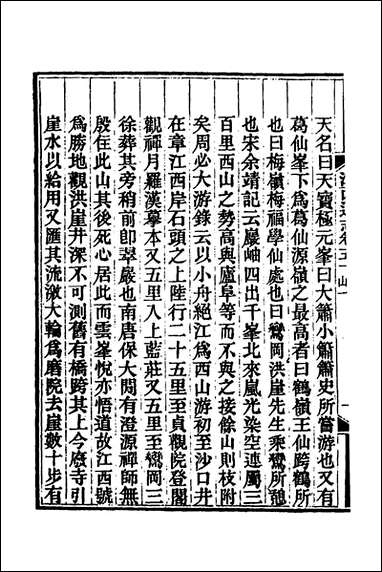 天名曰天寶極元峯曰大簫小簫簫史所嘗游也又有
葛仙峯下爲葛仙源嶺之最高者曰鶴嶺王仙跨鶴所
也曰梅嶺梅福學仙處也曰鸞岡洪崖先生乘鸞所憩
也宋余靖記云巖岫四出千峯北來嵐光染空連屬三
百里西山之勢高與廬阜等而不與之接餘山則枝附
矣周必大游錄云以小舟絕江爲西山游初至沙口井
在章江西岸石頭之上陸行二十五里至貞觀院登閣
觀禪月羅漢摹本又五里入上藍莊又五里至鸞岡三
徐葬其旁稍前卽翠巖也南唐保大閒有澄源禪師無
殷住此山其後死心居此而雲峯悅亦悟道故江西號
爲勝地觀洪崖井深不可測舊有橋跨其上今廢寺引
崖水以給用又匯其流激大輪爲磨院去崖數十步有